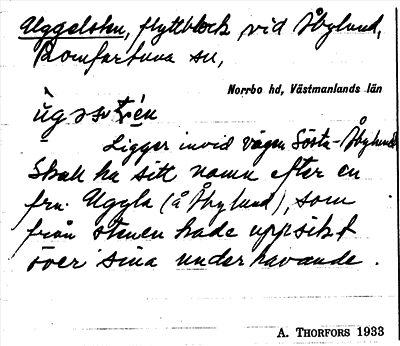 Uggelsten, flyttblock vid Åbylund,
Romfartuna sn,
Norrbo hd, Västmanlands län
Ligger invid vägen Sörsta-Åbylund
Skall ha sitt namn efter en
fru Uggla (å Åbylund), som
från stenen hade uppsikt
över sina underhavande.
A. THORFORS 1933